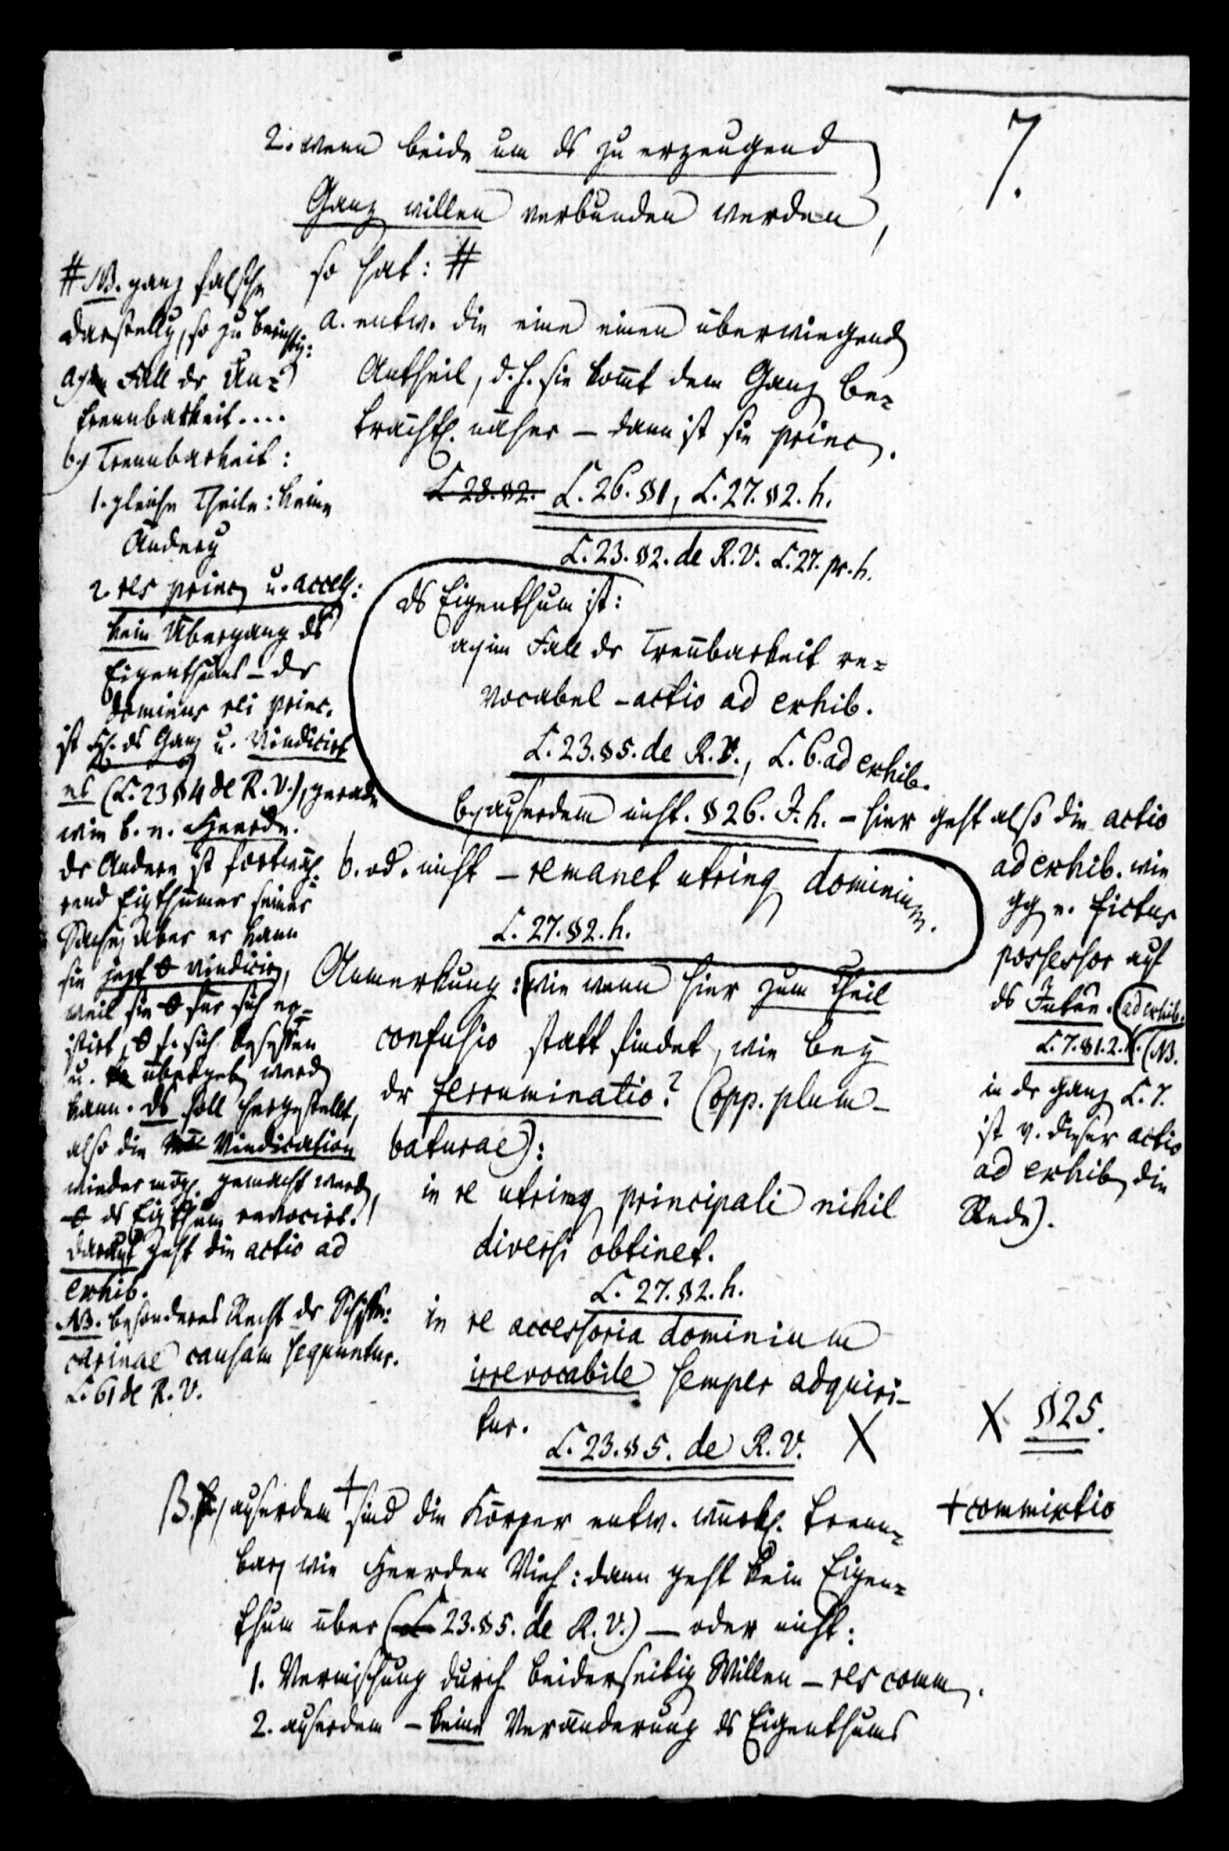 7.
2. wenn beide um ds zu erzeugend
Ganz willen verbunden werden,
so hat: #
a. entw. die eine einen überwiegend
Antheil, d. h. sie kommt dem Ganz be-
trächtl. näher – dann ist sie princ.
L. 28. §2. L. 26. §1, L. 27. §2. h.
L. 23. §2. de R. V. L. 27. pr. h.
ds Eigenthum ist:
a) im Fall dr Trennbarkeit re-
vocabel – actio ad exhib.
L. 23. §5. de R. V., L. 6. ad exhib.
b) außerdem nicht. §26. J. h. – hier geht also die actio
ad exhib. wie
gg e. fictus
possessor auf
ds Intere. (ad exhib.
L. 7. §1. 2. h. (NB.
in dr ganz L. 7.
ist v. dieser actio
ad exhib. die
Rede).
b. od. nicht – remanet utriusq dominium.
L. 27. §2. h.
Anmerkung: wie wenn hier zum Theil
confusio statt findet, wie bey
dr ferruminatio? (opp. plum-
baturae):
in re utrimq principali nihil
diversi obtinet.
L. 27. §2. h.
in re accessoria dominium
irrevocabile semper adquiri-
tur.
L. 23. §5. de R. V. X
X §25.
# NB. ganz falsche
Darstellg, so zu berichtig:
a) Fall dr Un-
trennbarkeit....
b) Trennbarkeit:
1. gleiche Theile: keine
Änderg
2. res princ u. access:
kein Übergang ds
Eigenthums – dr
dominus rei princ.
ist ds Ganz u. vindicirt
es (L. 23 §4 de R. V.), gerade
wie b. e. Heerde.
dr Andere ist fortwäh-
rend Eigthümer seiner
Sache, aber er kann
sie jezt vindicir,
weil sie für sich ex-
istirt, f. sich besessen
u. übergeb werd
kann. ds soll hergestellt,
also die Vindication
wieder mögl. gemacht werd,
ds Eigthum revocirt.
darauf geht die actio ad
exhib.
NB. besonderes Recht dr Schiffe:
carinae causam sequuntur.
L. 61 de R. V.
β. außerdem + sind die Körper entw. würkl. trenn-
bar, wie Heerden Vieh: dann geht kein Eigen-
thum über (L 23. §5. de R. V.) – oder nicht:
+ commixtio
1. Vermischung durch beiderseitig Willen – res comm.
2. außerdem – keine Veränderung ds Eigenthums